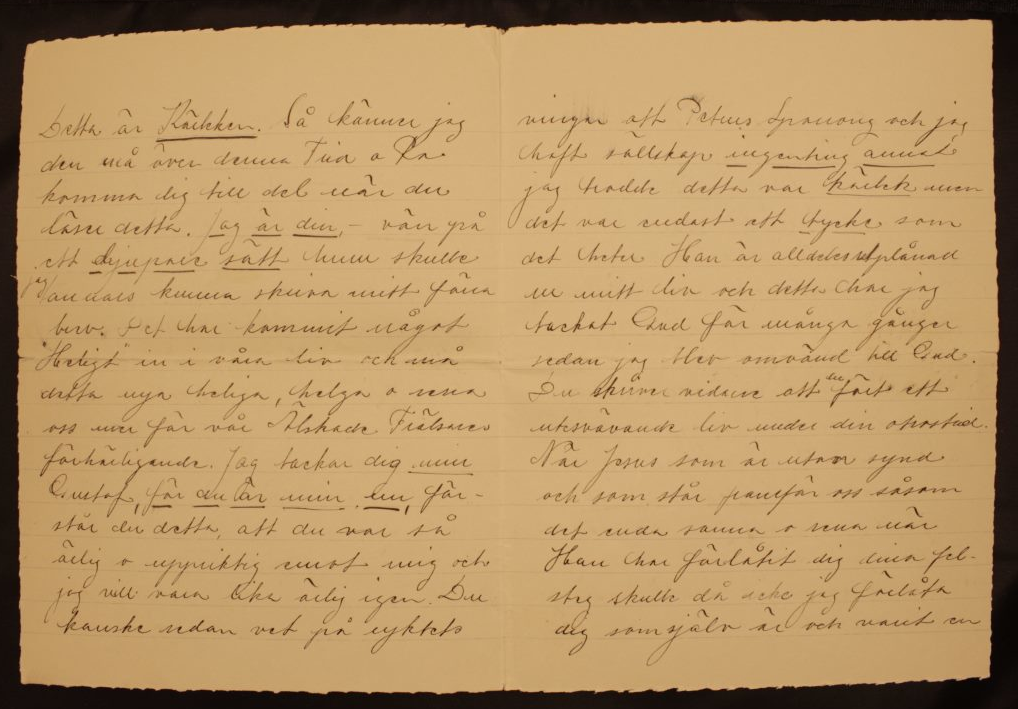 Detta är Kärleken. Så känner jag
den må över denna Tid o
komma dig till del när du
läser detta. Jag är din, – vän på
ett djupare sätt hum skulle
jag annars kunna skriva mitt förra
brev. Det har kommit något
"Heligt" in i våra liv och må
detta nya heliga, helga o rena
oss mer för vår Älskade Frälsares
förhärligande. Jag tackar dig min
Gustaf, för du är min, för-
står du detta, att du var så
ärlig o uppriktig emot mig och
jag vill vara lika ärlig igen. Du
kanske redan vet på ryktets
vingar att Petrus och jag
haft sällskap ingenting annat
jag trodde detta var kärlek men
det var endast ett tycke som
det heter Han är alldeles utplånad
ur mitt liv och detta har jag
tackat Gud för många gånger
sedan jag blev omvänd till Gud.
Du skriver vidare att du fört ett
utsvävande liv under din otrostid.
När Jesus som är utan synd
och som står framför oss såsom
det enda sanna o rena när
Han har förlåtit dig dina fel-
steg skulle då icke jag förlåta
dig som själv är och varit en